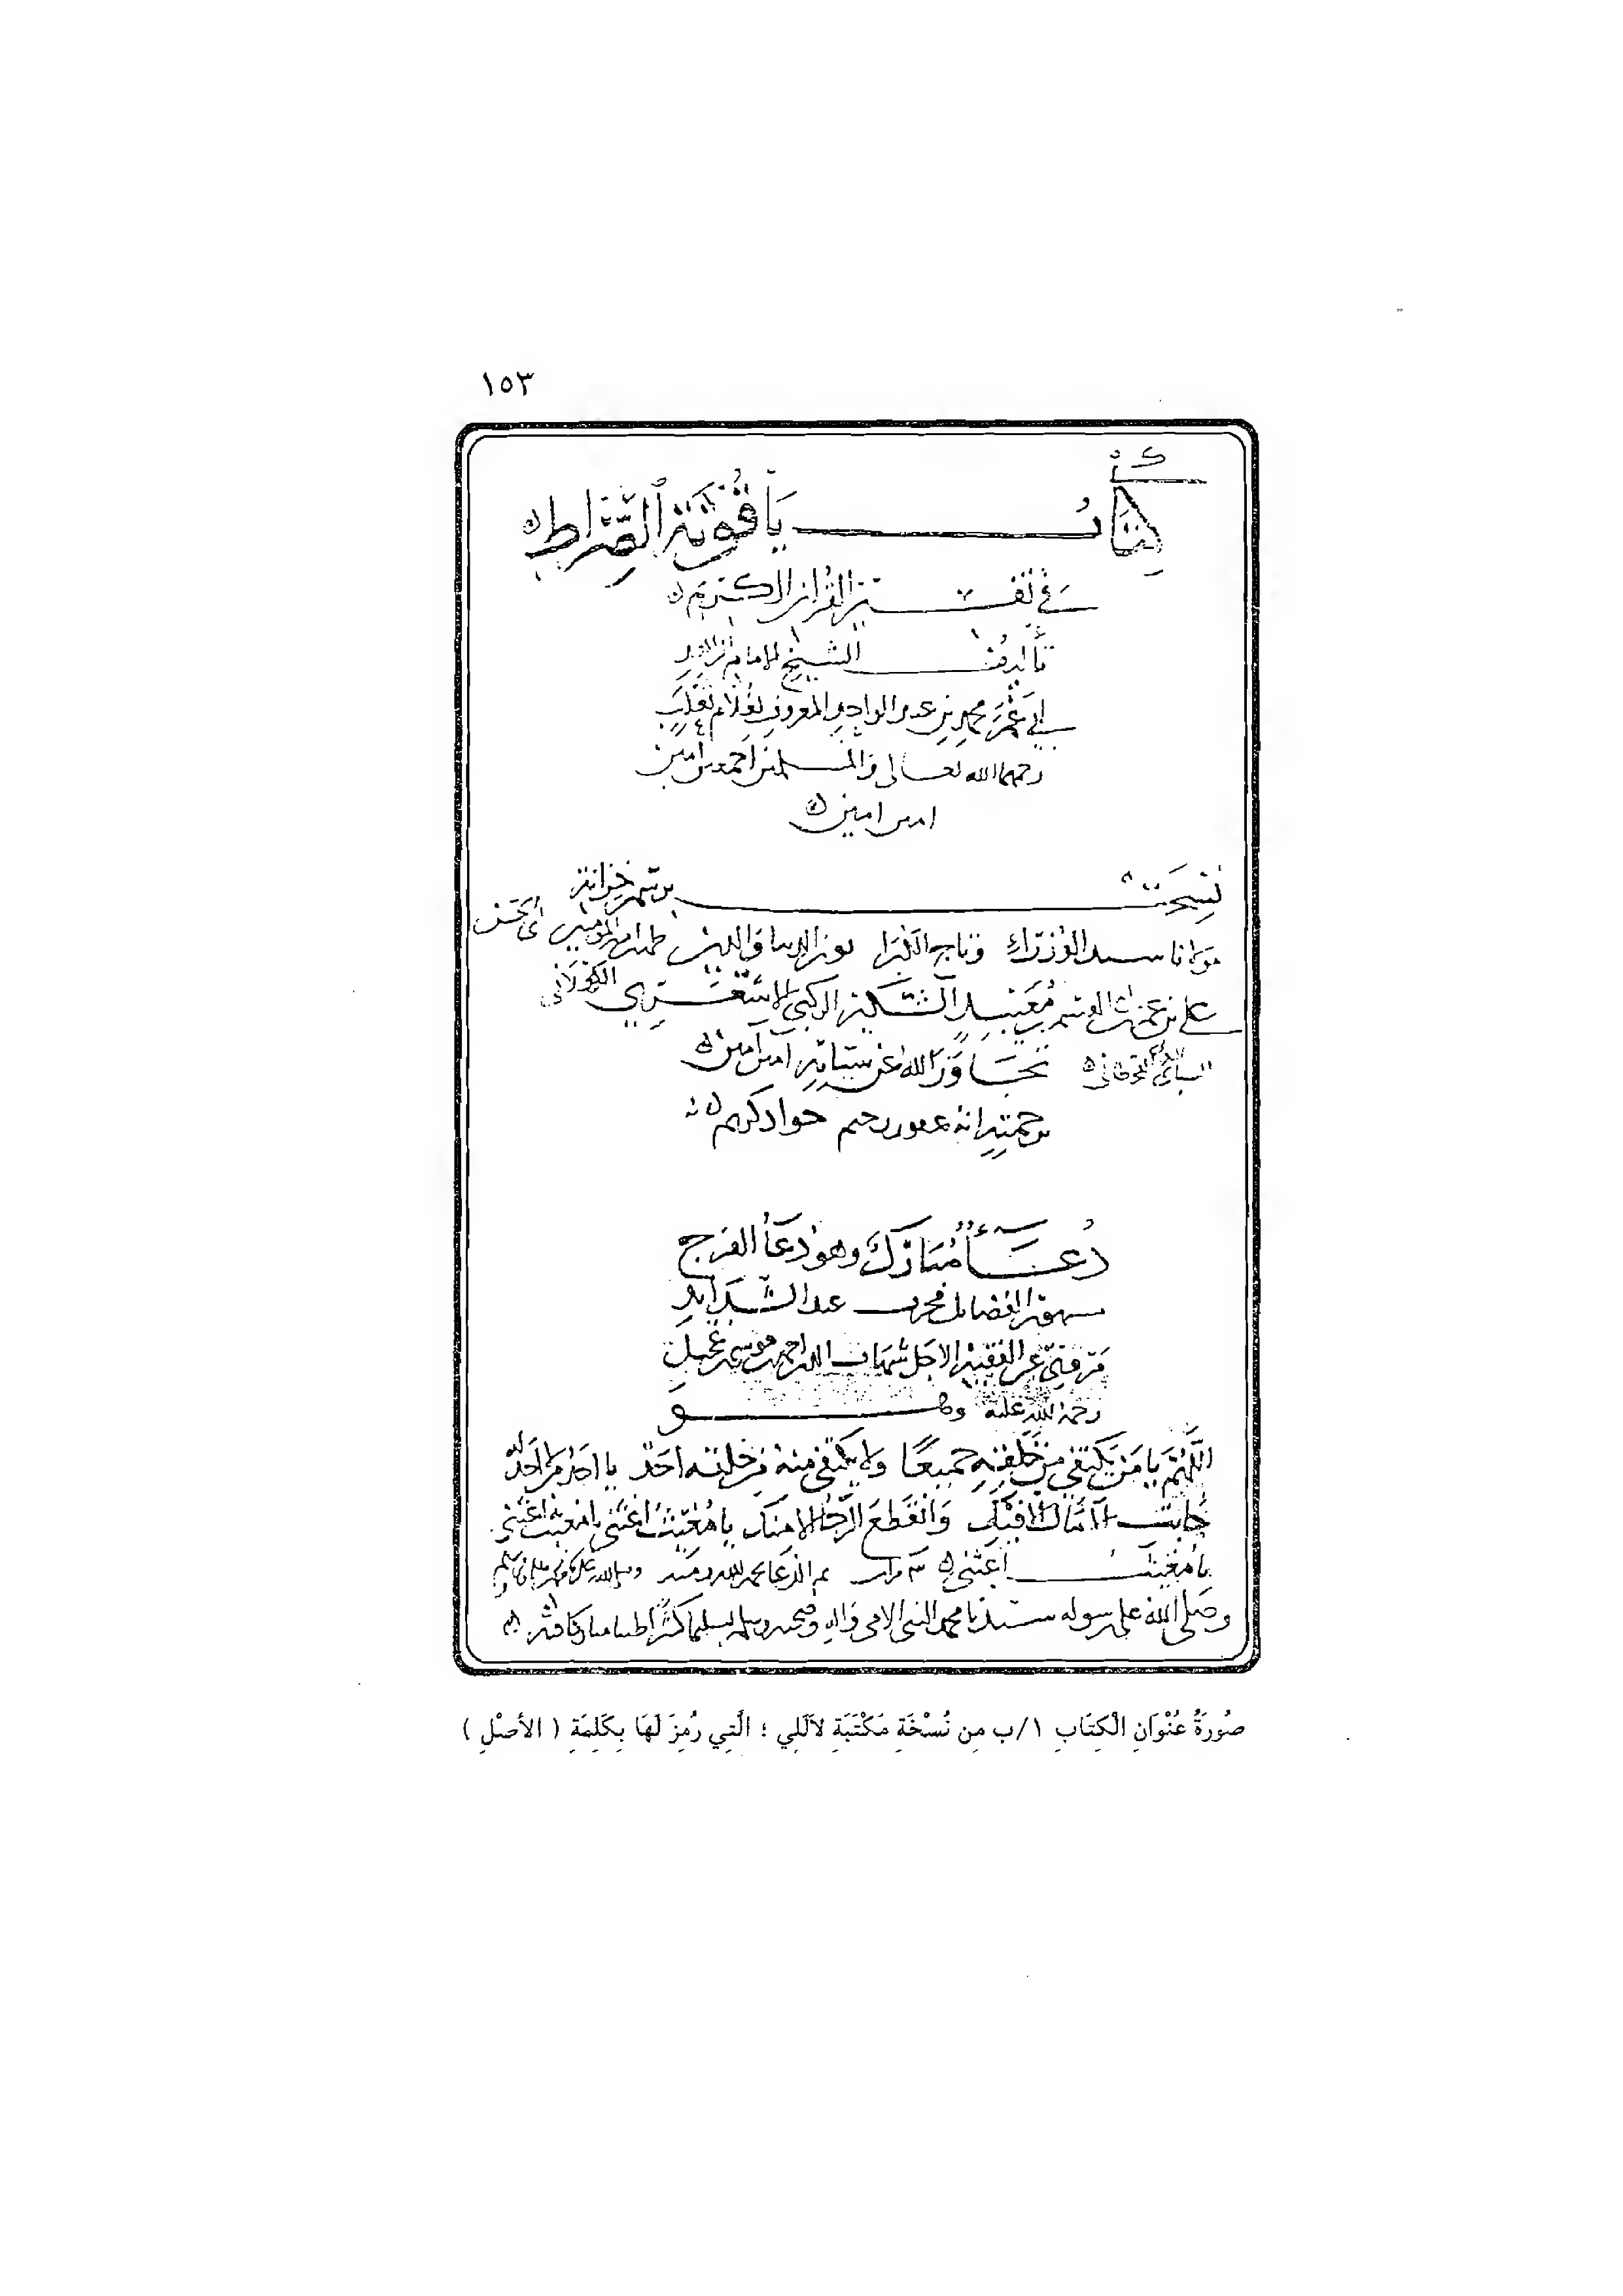 ١٥٣
كتاب ياقوتة الصراط
في تفسير القران الكريم
تأليف الشيخ الامام الزاهد
ابي عُمَر محمد بن عبد الواحد المعروف بغُلام ثَعْلَب
رحمهما الله تعالى والمسلمين اجمعين امين
امين امين
نُسِخَت برسم خزانة
مولانا سيد الوُزَرَاءِ وتاج الكُبَرَا نور الدنيا والدين ابي الحسن
علي بن
تجاوز الله عن سيئاته آمين آمين
برحمته انه غفور رحيم جواد كريم
دُعَآءٌ مُبَارَك وهو دُعَآ الفرج
مجرب عند الشدايد
عن الفقيه الاجل شهاب الدين احمد بن موسى بن عجيل
رحمة الله عليه وهو
اللَّهُمَّ يَا مَن يَكتفي من خَلقِهِ جميعًا ولا يكتفي منه من خلقه احَدٌ يا احَدُ من لا احَدَ له
خَابت الآمَال الا فيك وَانقَطعَ الرَّجَا الا منك يا مُغيثُ اغثني يا مغيث اغثني
يا مُغيث أغثني ٣ مرات تم الدعا بحمد الله ومنه
وصَلى الله على رسوله سيدنا محمد النبي الامي واله وصحبه وسلم تسليما كثيرًا طيبا مباركا فيه
صُورَةُ عُنْوَانِ الْكِتَابِ ١/ب مِن نُسْخَةِ مَكْتَبَةِ لاَلَلِي ؛ الَّتِي رُمِزَ لَهَا بِكَلِمَةِ ( الأصْلِ )